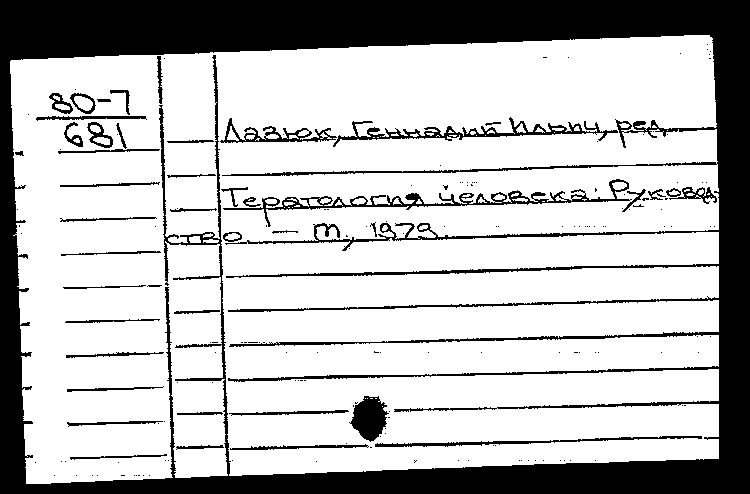 80-7
681
Лазюк, Геннадий Ильич, ред.
Тератология человека: Руковод-
ство. — М., 1979.